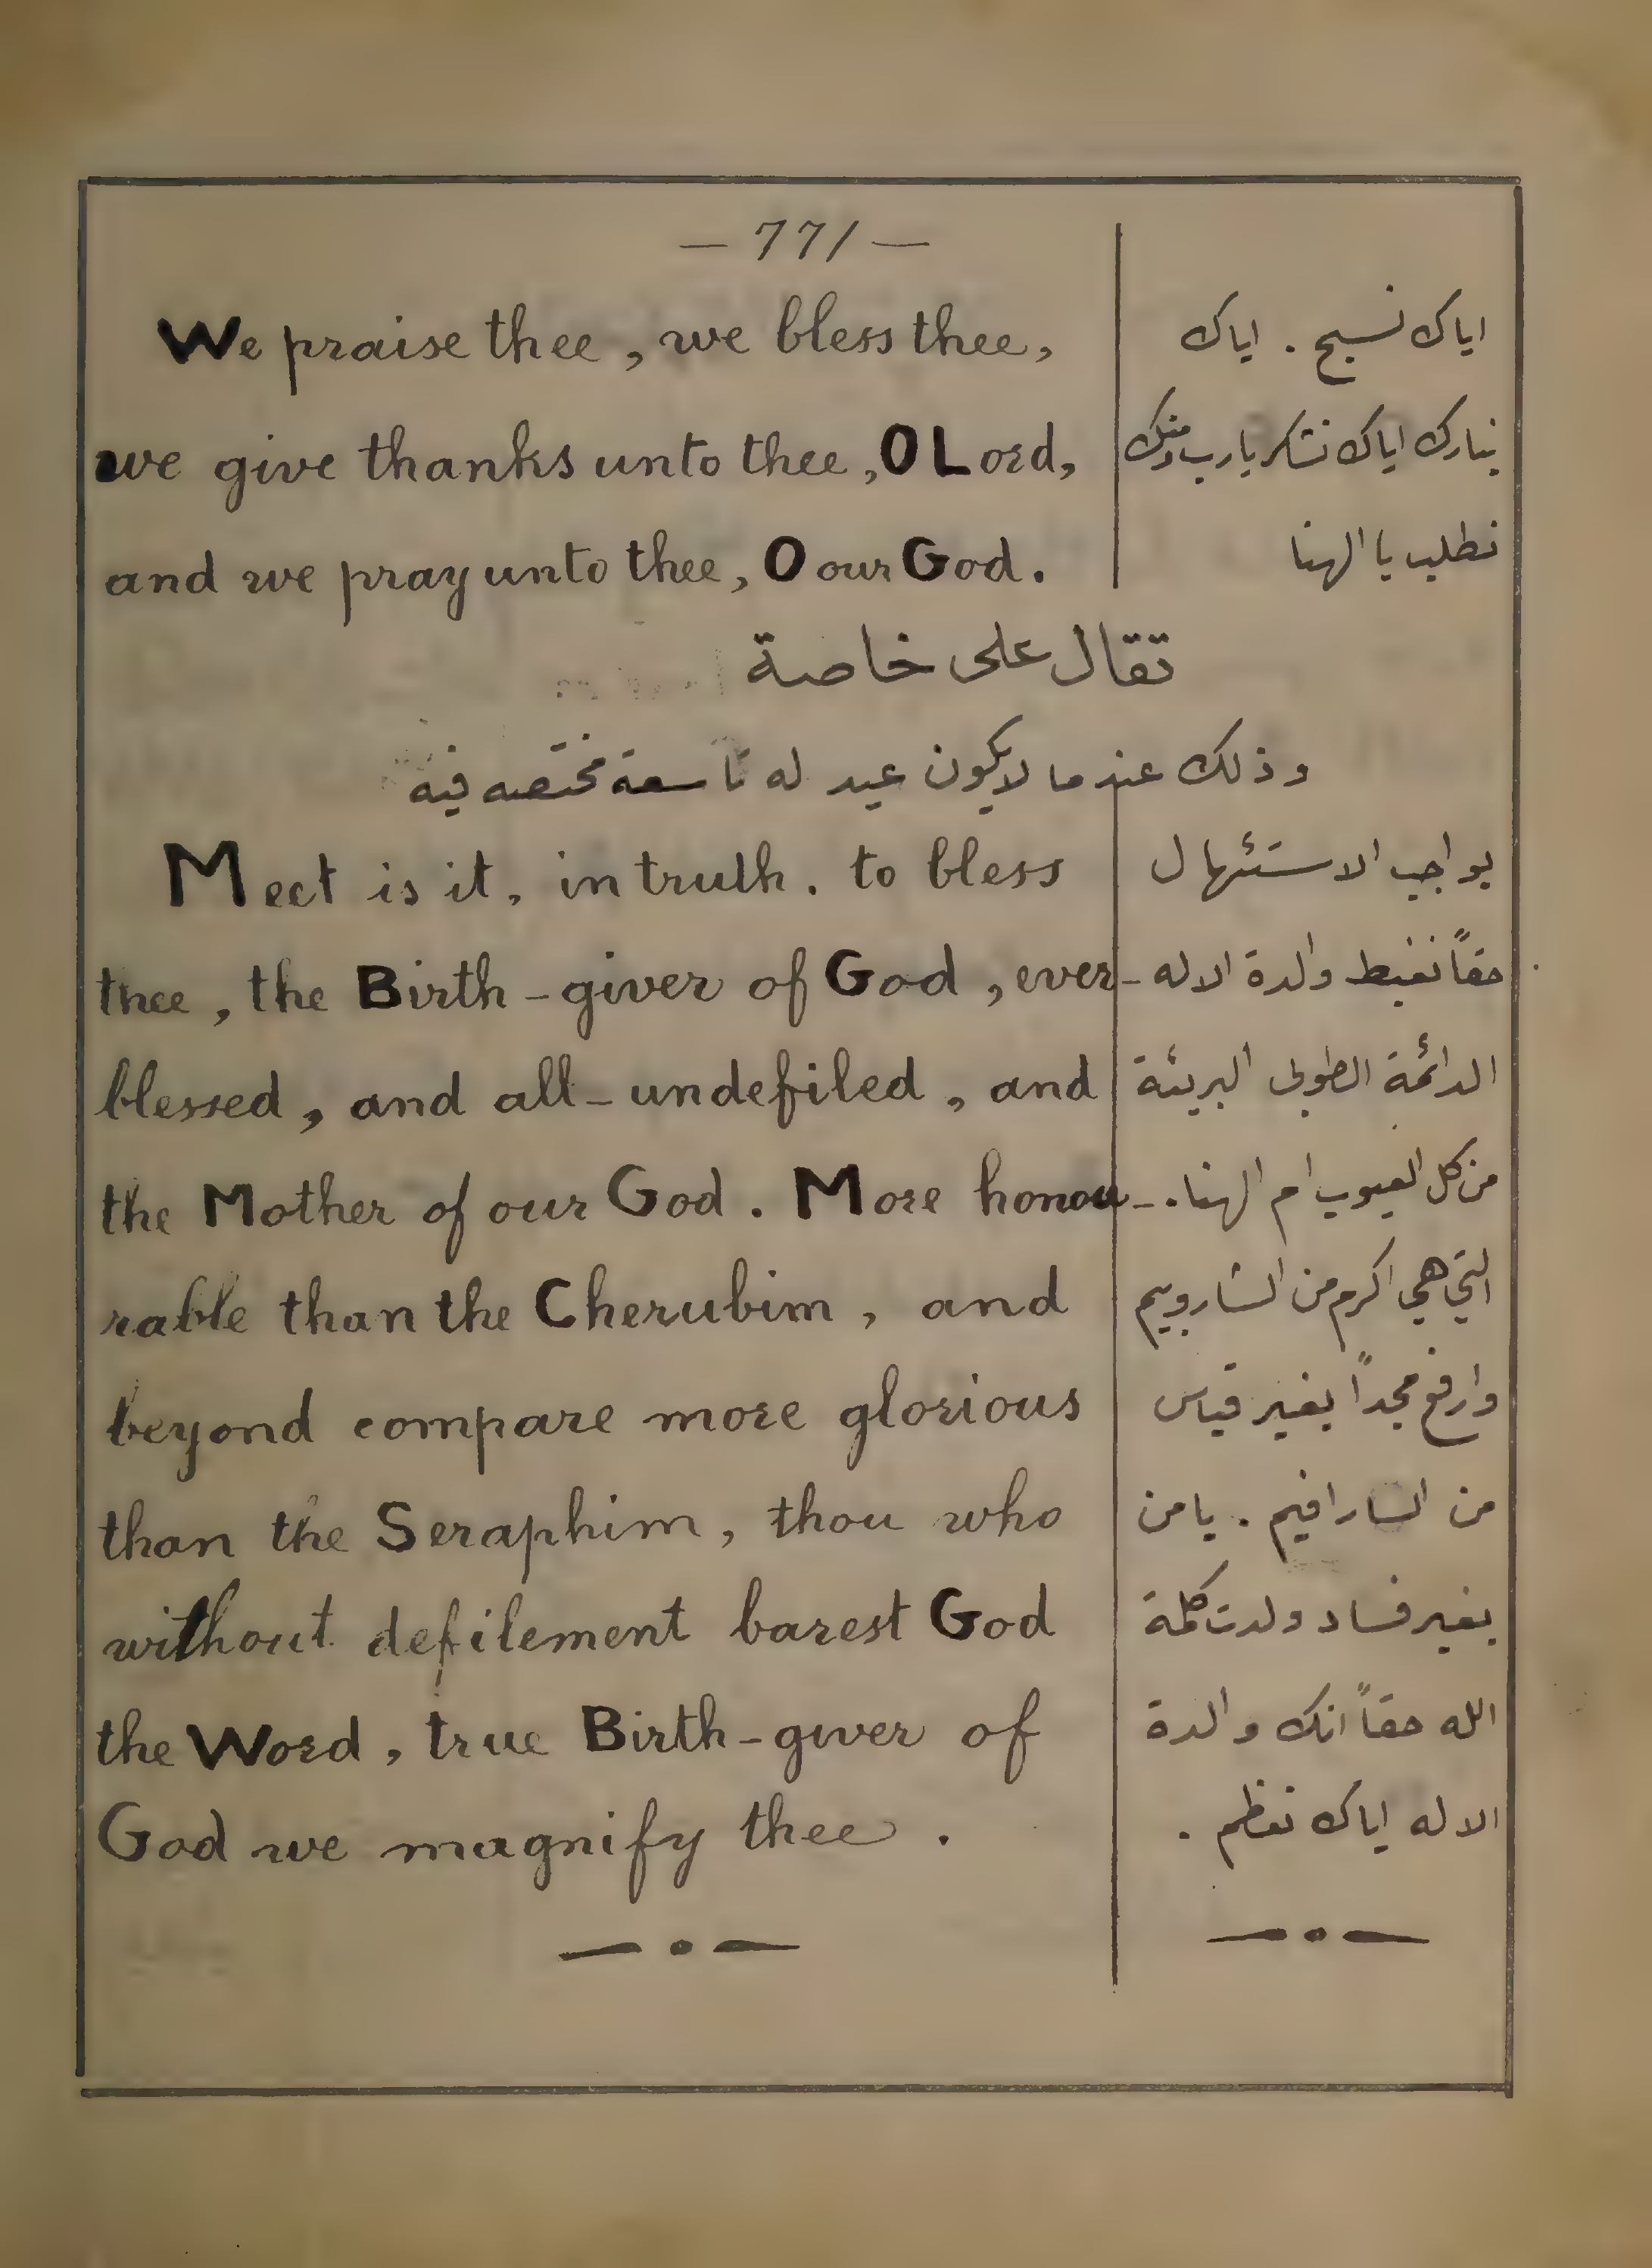 — 771 —
We praise thee, we bless thee,
we give thanks unto thee, O Lord,
and we pray unto thee, O our God.
اياك نسبح . اياك
نبارك اياك نشكر يا رب ومنك
نطلب يا الهنا
تقال على خاصة
وذلك عندما لا يكون عيد له تاسعة مختصه فيه
Meet is it, in truth. to bless
thee, the Birth-giver of God, ever-
blessed, and all-undefiled, and
the Mother of our God. More honou-
rable than the Cherubim, and
beyond compare more glorious
than the Seraphim, thou who
without defilement barest God
the Word, true Birth-giver of
God we magnify thee.
بواجب الاستئهال
حقاً نغبط والدة الاله
الدائمة الطوبى البريئة
من كل العيوب ام الهنا.
التي هي اكرم من الشاروبيم
وارفع مجداً بغير قياس
من السارافيم . يا من
بغير فساد ولدت كلمة
الله حقاً انك والدة
الاله اياك نعظم .